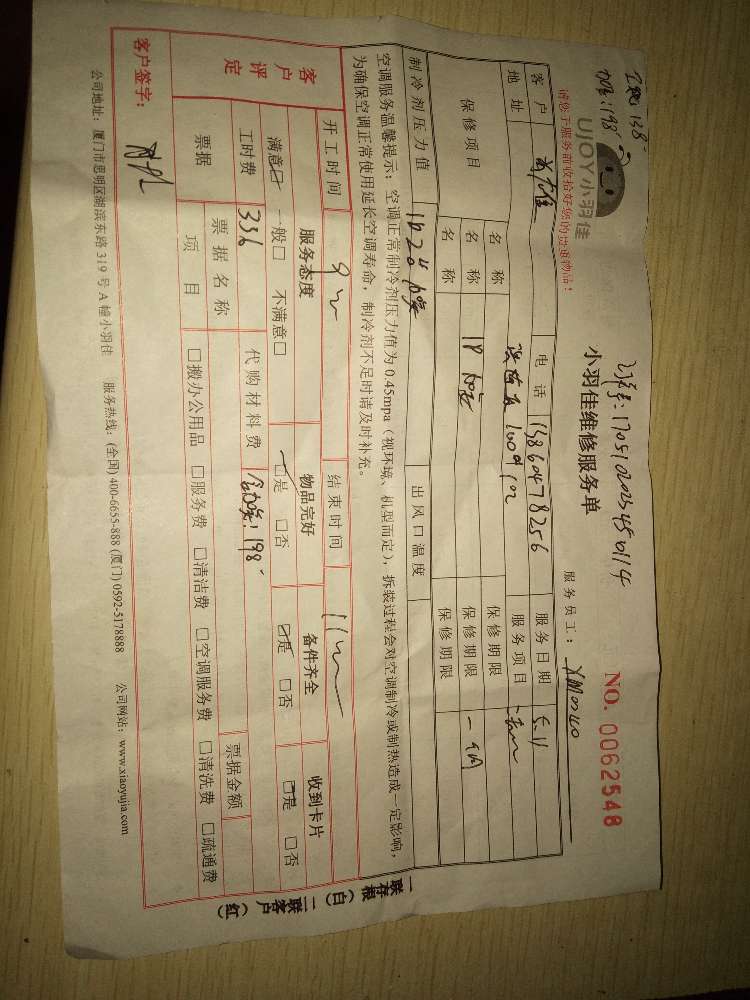 加氟:198
UJOY小羽佳
请您于服务前收拾好您的贵重物品!
订单号:1705102025480114
小羽佳维修服务单
NO. 0062548
服务员工:
客户
电话 13860478256
服务日期 5.11
地址
服务项目
保修项目
名称
保修期限
名称 1P 加氟
保修期限 一个月
名称
保修期限
制冷剂压力值
出风口温度
空调服务温馨提示:空调正常制冷剂压力值为0.45mpa(视环境、机型而定),拆装过程会对空调制冷或制热造成一定影响,
为确保空调正常使用延长空调寿命,制冷剂不足时请及时补充。
开工时间 9
结束时间 11
客户评定
服务态度
物品完好
备件齐全
收到卡片
满意□ 一般□ 不满意□
□是 □否
□是 □否
□是 □否
工时费 336
代购材料费 加氟:198
票据
票据名称
票据金额
项目
□搬办公用品 □服务费 □清洁费 □空调服务费 □清洗费 □疏通费
客户签字:
公司地址:厦门市思明区湖滨东路319号A幢小羽佳 服务热线:(全国)400-6655-888 (厦门)0592-5178888 公司网站:www.xiaoyujia.com
一联存根(白) 二联客户(红)